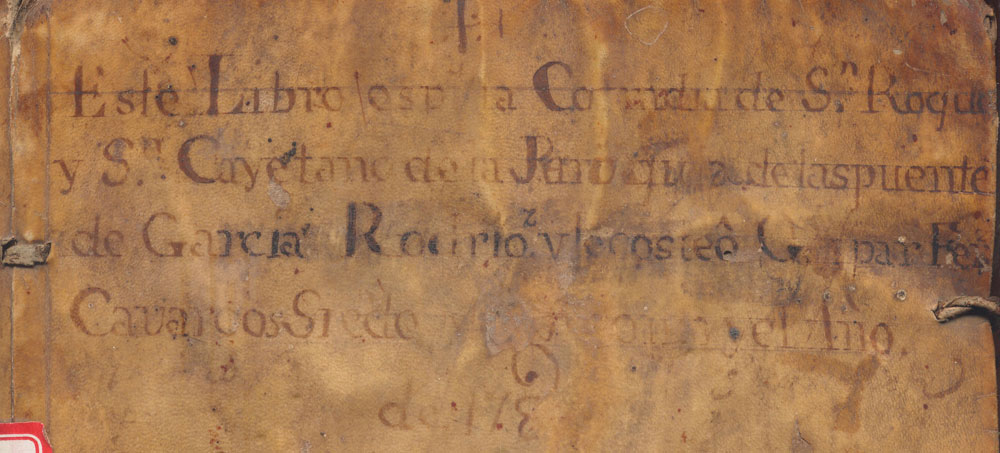 Este Libro es pa la Cofradia de S.n Roque
y S.n Cayetano de la Parroquia de las puente
de Garcia Rodrio.z y le costeô Gaspar Fer
Cavarcos Siedo el Año
de 17